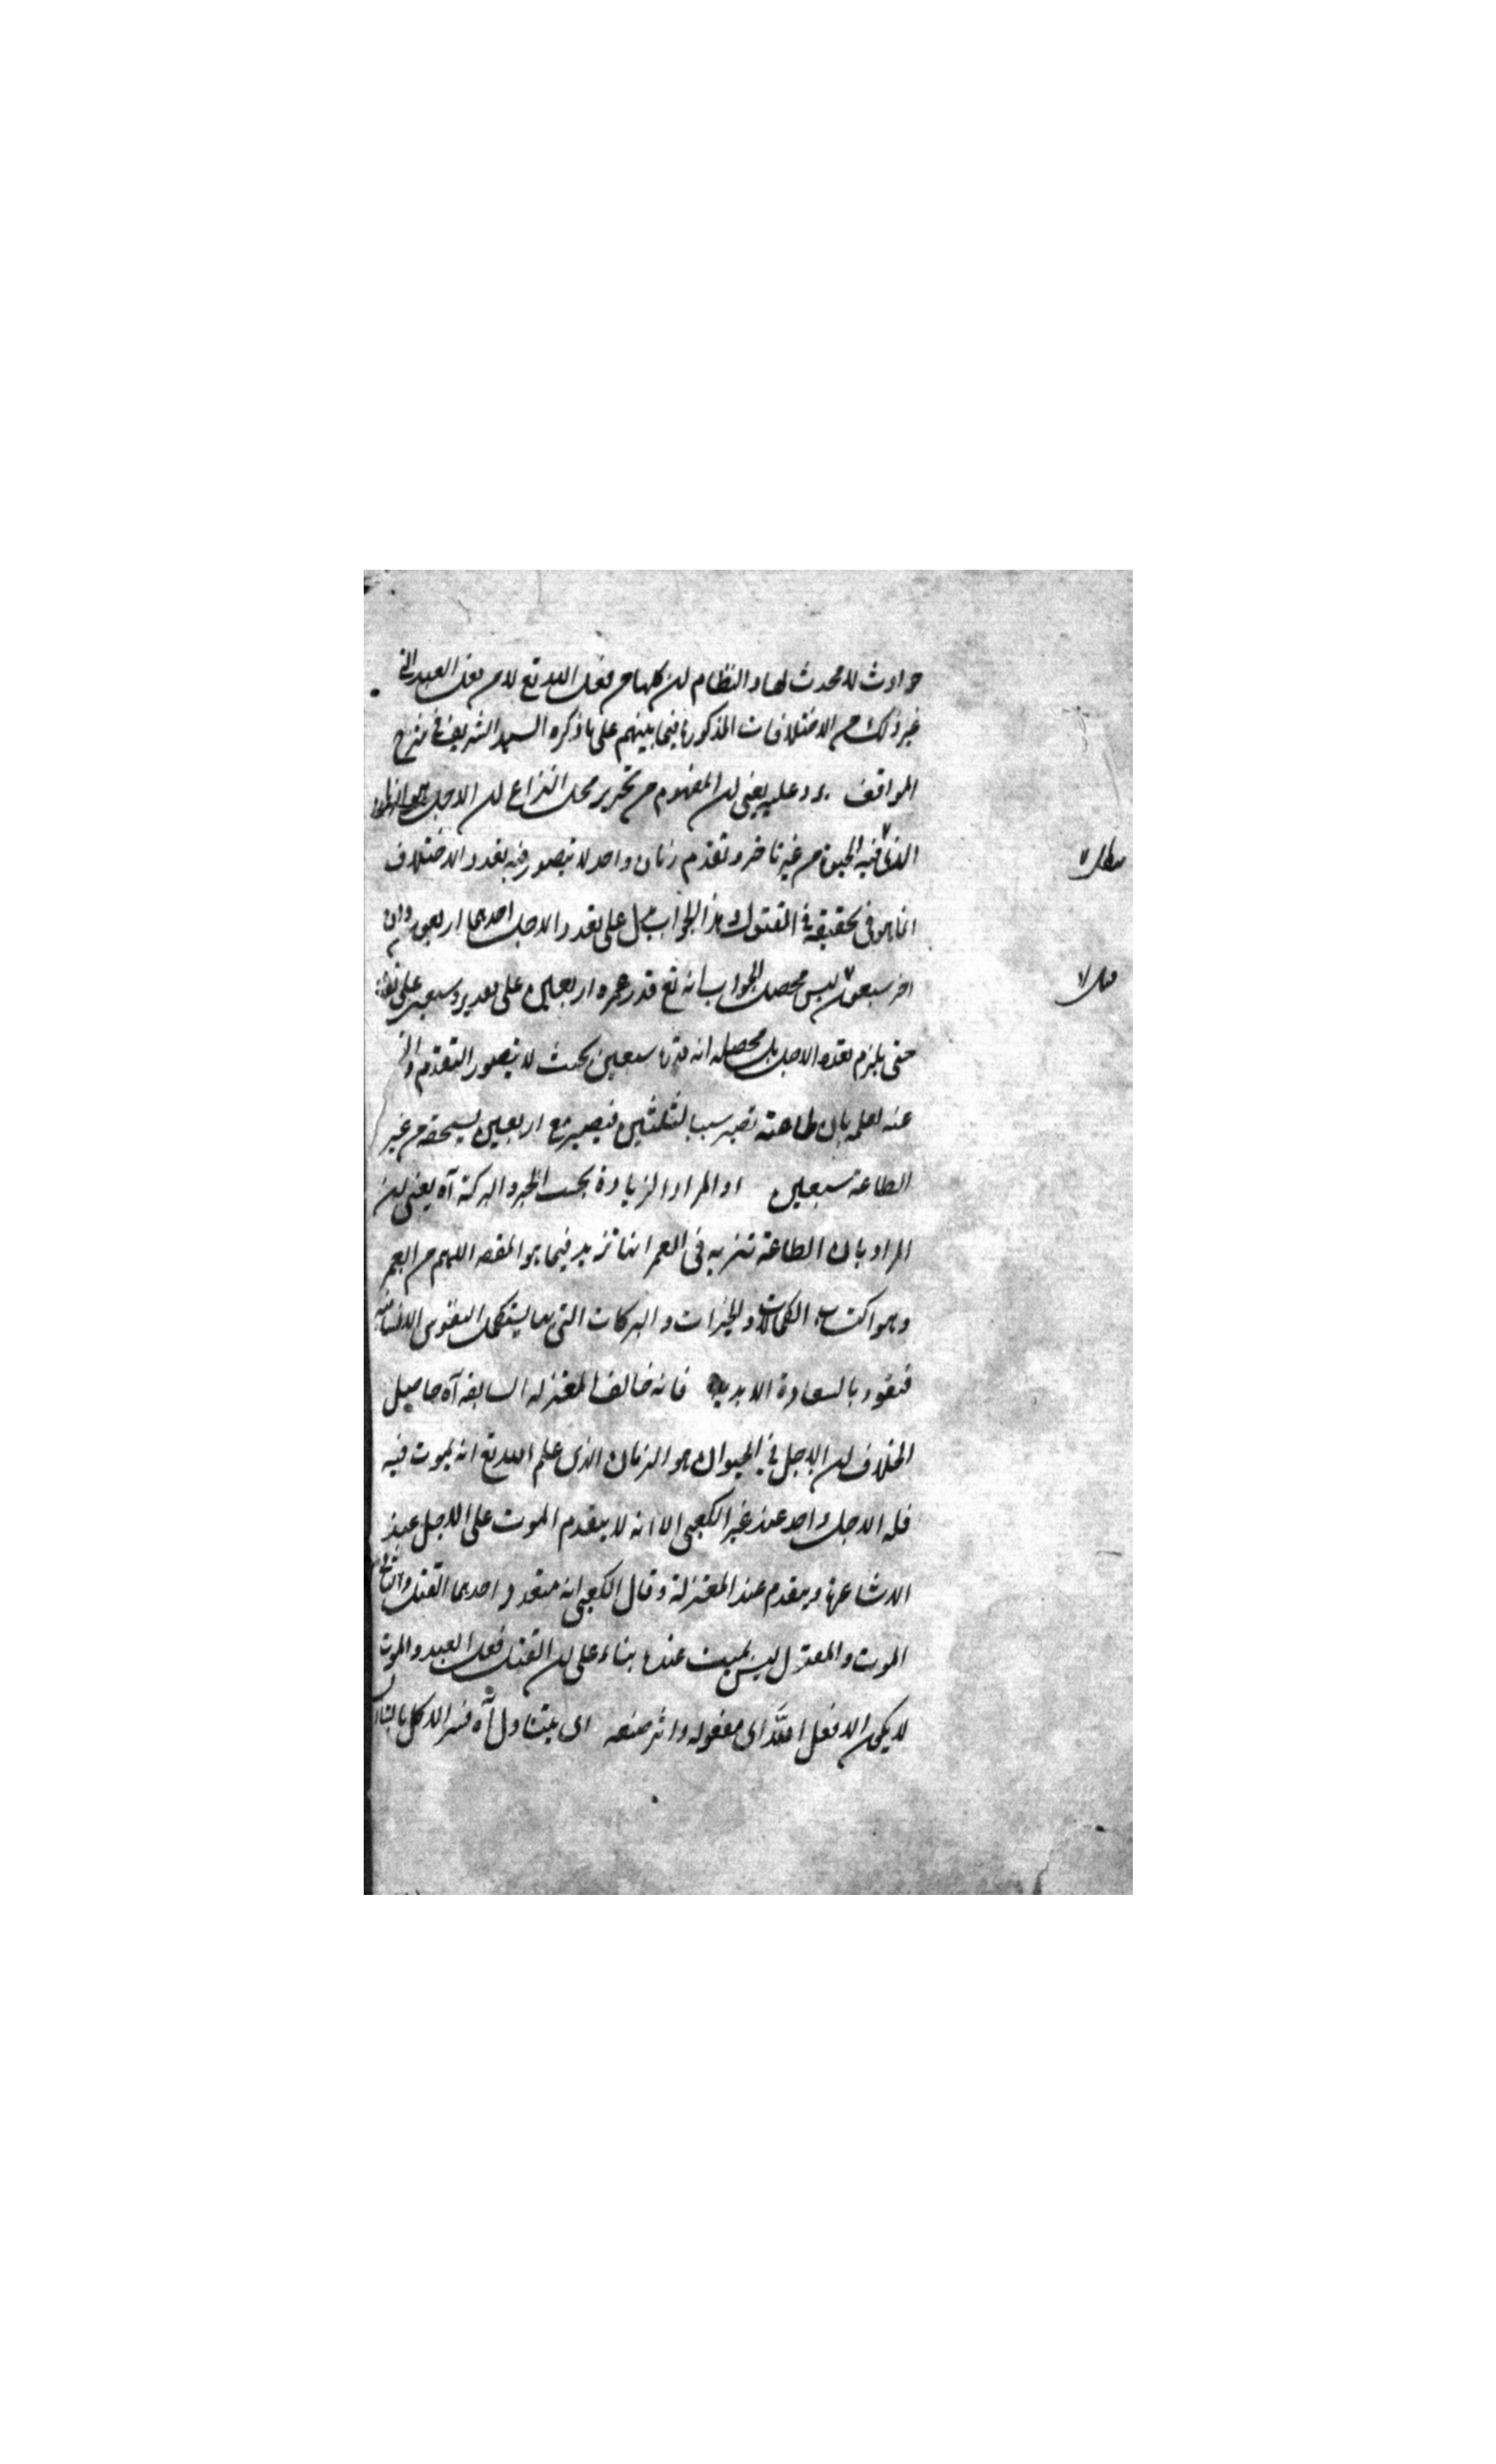 حوادث لا محدث لها والنظام ان كلها من فعل الله تع لا من فعل العبد الى
غير ذلك من الاختلافات المذكورة فيما بينهم على ما ذكره السيد الشريف فى شرح
المواقف يرد عليه يعنى ان المفهوم من تحرير محل النزاع ان الاجل هو الزمان
الذى فيه الحيوة من غير تاخر وتقدم زمان واحد لا يتصور فيه تعدد والاختلاف
انما هو فى تحققه فى المقتول وهذا الجواب يدل على تعدد الاجل احدهما اربعون وان
اخر سبعون ليس محصل الجواب انه تع قدر عمره اربعين على تقدير وسبعين على تقدير
حتى يلزم تعدد الاجل بل محصله انه قدره سبعين بحيث لا يتصور التقدم
عنه لعلمه بان طاعته تصير سببا لثلثين فيصير مع اربعين يستحقه من غير
الطاعة سبعين او المراد الزيادة بحسب الخير والبركة آه يعنى ان
المراد بان الطاعة تزيد فى العمر انها تزيد فيما هو المقصد الاهم من العمر
وهو اكتساب الكمالات والخيرات والبركات التى بها يستكمل النفوس الانسانية
فتفوز بالسعادة الابدية فانه خالف المعتزلة السابقة آه حاصل
الخلاف ان الاجل فى الحيوان هو الزمان الذى علم الله تع انه يموت فيه
فله الاجل واحد عند غير الكعبى الا انه لا يتقدم الموت على الاجل عند
الاشاعرة ويتقدم عند المعتزلة وقال الكعبى انه متعدد احدهما القتل والثانى
الموت والمقتول ليس بميت عنده بناء على ان القتل فعل العبد والموت
لا يكون الا فعل الله اى مفعوله واثر صنعه اى يتناول آه فسر الاكل بالتناول